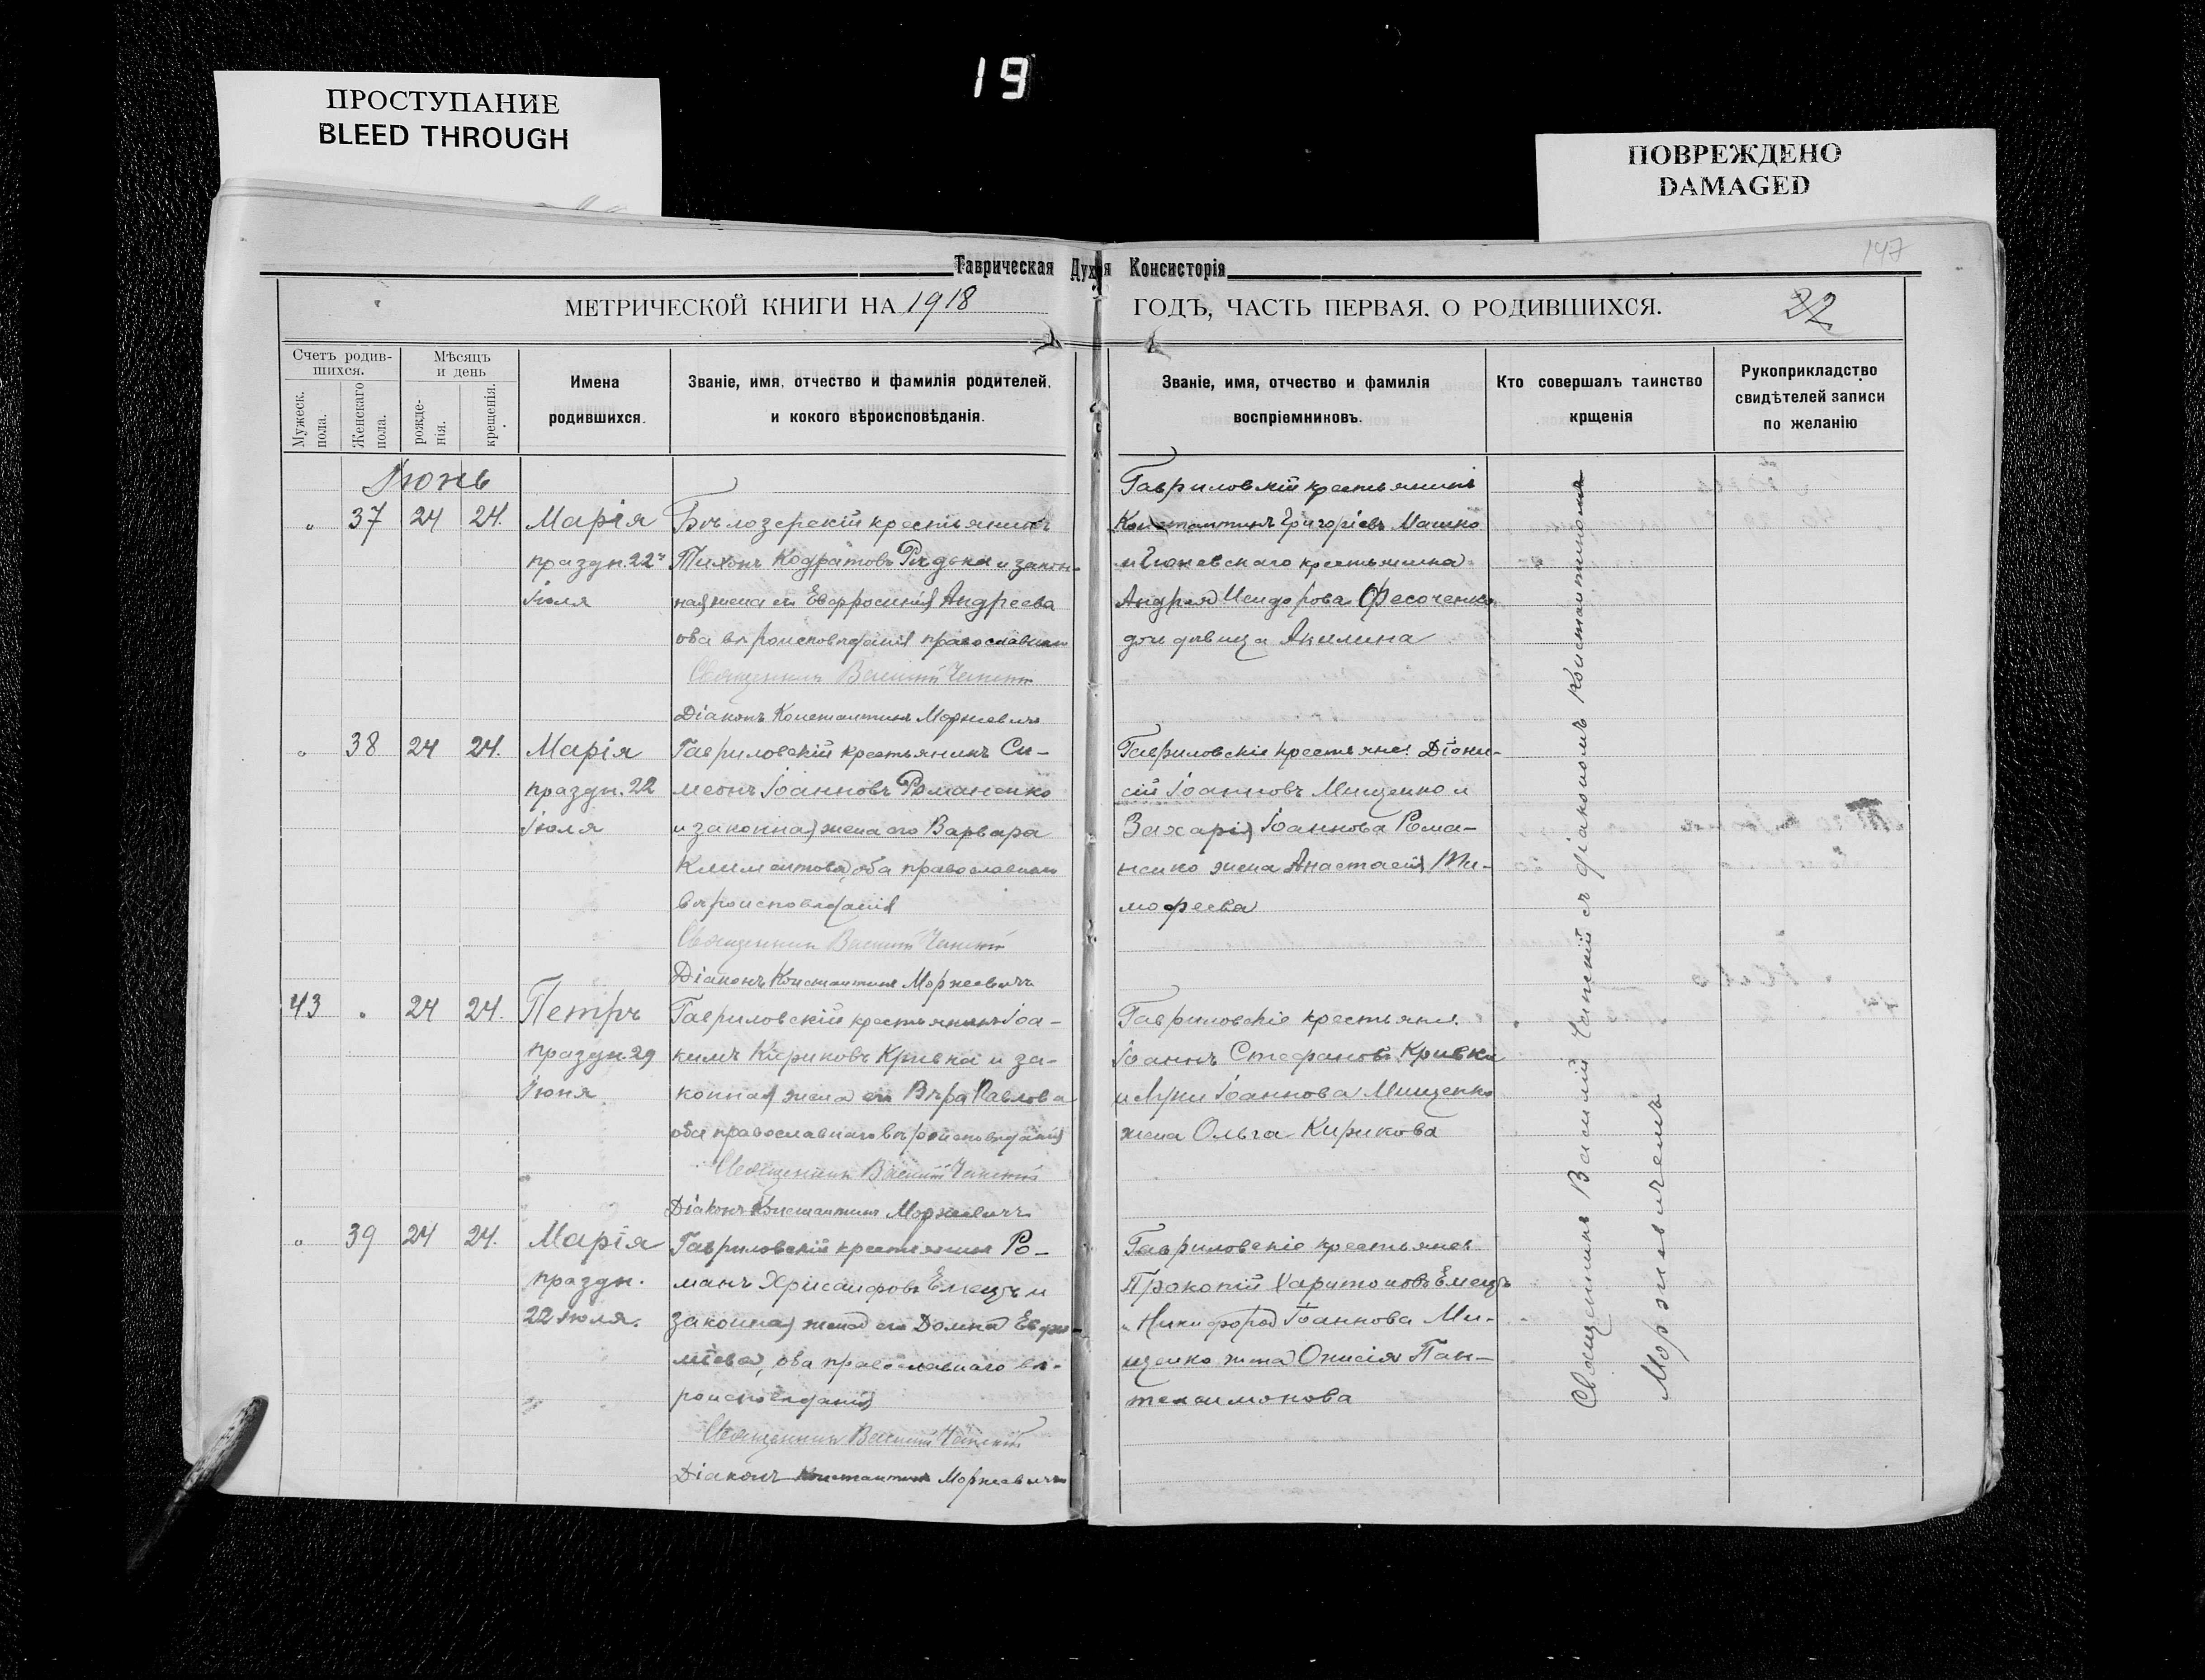 19
ПРОСТУПАНИЕ
BLEED THROUGH
ПОВРЕЖДЕНО
DAMAGED
147
Таврическая Дух я Консисторія
МЕТРИЧЕСКОЙ КНИГИ НА 1918
ГОДЪ, ЧАСТЬ ПЕРВАЯ, О РОДИВШИХСЯ.
22
Счетъ родив-
шихся.
Мужеск.
пола.
Женскаго
пола.
Мѣсяцъ
и день
рожде-
нія.
крещенія.
Имена
родившихся.
Званіе, имя, отчество и фамилія родителей,
и кокого вѣроисповѣданія.
Званіе, имя, отчество и фамилія
воспріемниковъ.
Кто совершалъ таинство
крщенія
Рукоприкладство
свидѣтелей записи
по желанію
Іюнь
" 37 24 24.
Марія
праздн. 22
Іюля
Бѣлозерскій крестьянинъ
Тихонъ Кодратовъ Рядька и закон-
ная жена его Евфросинія Андреева
оба вѣроисповѣданія православнаго
Священникъ Василій Чапскій
Діаконъ Константинъ Моржевичъ
Гавриловскій крестьянинъ
Константинъ Григорьевъ Машко
и крестьянина
Андрея Исидорова Фесоченко
дочь дѣвица Акилина
" 38 24 24.
Марія
праздн. 22
Іюля
Гавриловскій крестьянинъ Си-
меонъ Іоанновъ Романенко
и законная жена его Варвара
Климентова, оба православнаго
вѣроисповѣданія
Священникъ Василій Чапскій
Діаконъ Константинъ Моржевичъ
Гавриловскіе крестьяне: Діони-
сій Іоанновъ Мищенко и
Захарія Іоаннова Рома-
ненко жена Анастасія Ти-
мофеева
43 " 24 24.
Петръ
праздн. 29
Іюня
Гавриловскій крестьянинъ Іоа-
кимъ Кириковъ Кривка и за-
конная жена его Вѣра Павлова
оба православнаго вѣроисповѣданія
Священникъ Василій Чапскій
Діаконъ Константинъ Моржевичъ
Гавриловскіе крестьяне:
Іоаннъ Стефановъ Кривка
и Луки Іоаннова Мищенко
жена Ольга Кирикова
" 39 24 24.
Марія
праздн.
22 Іюля.
Гавриловскій крестьянинъ Ро-
манъ Хрисанфовъ Емецъ и
законная жена его Домна Евфи-
міева, оба православнаго вѣ-
роисповѣданія
Священникъ Василій Чапскій
Діаконъ Константинъ Моржевичъ
Гавриловскіе крестьяне
Прокопій Харитоновъ Емецъ
и Никифора Іоаннова Ми-
щенко жена Онисія Пан-
телеимонова
Священникъ Василій Чапскій съ діакономъ Константиномъ
Моржевичемъ